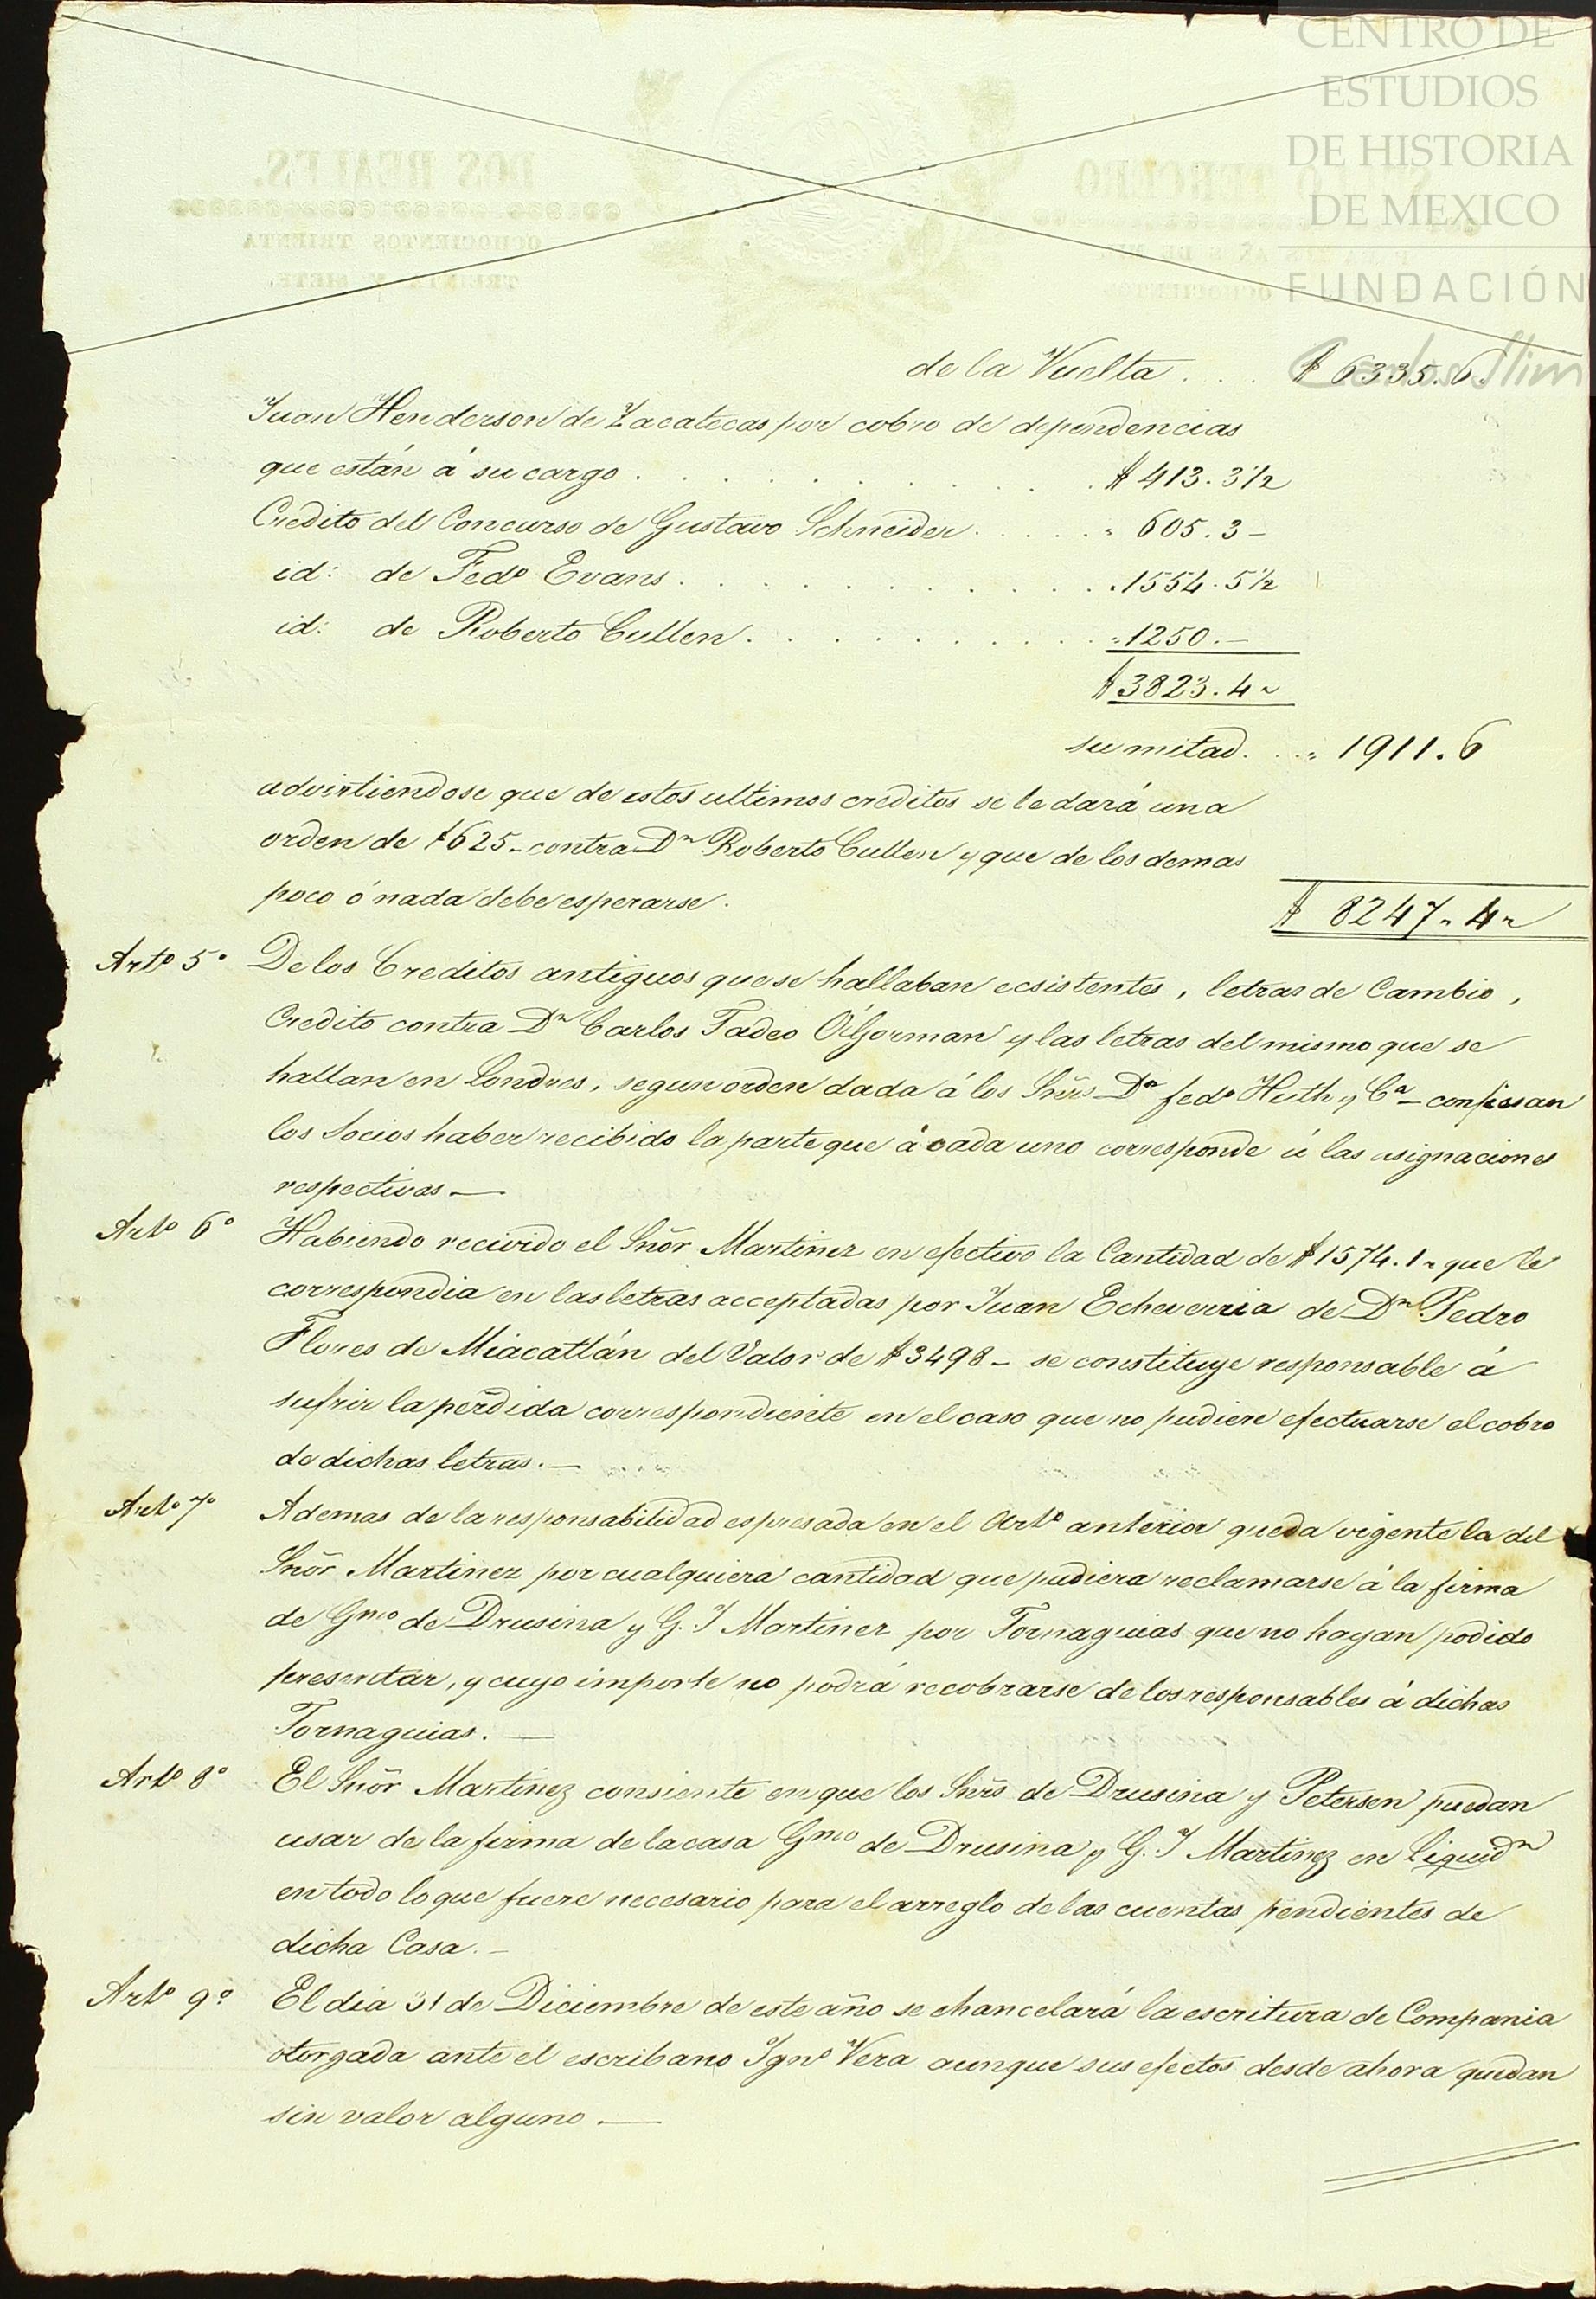 CENTRO DE
ESTUDIOS
DE HISTORIA
DE MEXICO
FUNDACIÓN
Carlos Slim
DOS REALES.
OCHOCIENTOS TREINTA
TREINTA Y SIETE.
de la Vuelta . . . $ 6335.6.
Juan Henderson de Zacatecas por cobro de dependencias
que están á su cargo . . . . . . . . . . $ 413.3½
Credito del Concurso de Gustavo Schneider . . . . . " 605.3–
id: de Fedo Evans . . . . . . . . . . " 1554.5½
id: de Roberto Cullen . . . . . . . . . " 1250.–
$ 3823.4~
su mitad . . . " 1911.6
advirtiendose que de estos ultimos creditos se le dará una
orden de $625– contra Dn Roberto Cullen y que de los demas
poco ó nada debe esperarse.
$ 8247"4~
Arto 5o De los Creditos antiguos que se hallaban ecsistentes, letras de Cambio,
Credito contra Dn Carlos Tadeo O'Gorman y las letras del mismo que se
hallan en Londres, segun orden dada á los Snrs Dn fedo Huth y Ca– confiesan
los Socios haber recibido la parte que á cada uno corresponde ú las asignaciones
respectivas.—
Arto 6o Habiendo recivido el Snõr Martinez en efectivo la Cantidad de $1574.1~ que le
correspondia en las letras acceptadas por Juan Echeverria de Dn Pedro
Flores de Miacatlán del Valor de $3498– se constituye responsable á
sufrir la perdida correspondiente en el caso que no pudiere efectuarse el cobro
de dichas letras.—
Arto 7o Ademas de la responsabilidad espresada en el Arto anterior queda vigente la del
Snõr Martinez por cualquiera cantidad que pudiera reclamarse á la firma
de Gmo de Drusina y G. J Martinez por Tornaguias que no hayan podido
presentar, y cuyo importe no podrá recobrarse de los responsables á dichas
Tornaguias.—
Arto 8o El Snõr Martinez consiente en que los Snrs de Drusina y Petersen puedan
usar de la firma de la casa Gmo de Drusina y G. J Martinez en liquidn
en todo lo que fuere necesario para el arreglo de las cuentas pendientes de
dicha Casa.–
Arto 9o El dia 31 de Diciembre de este año se chancelará la escritura de Compania
otorgada ante el escribano Igno Vera aunque sus efectos desde ahora quedan
sin valor alguno.—